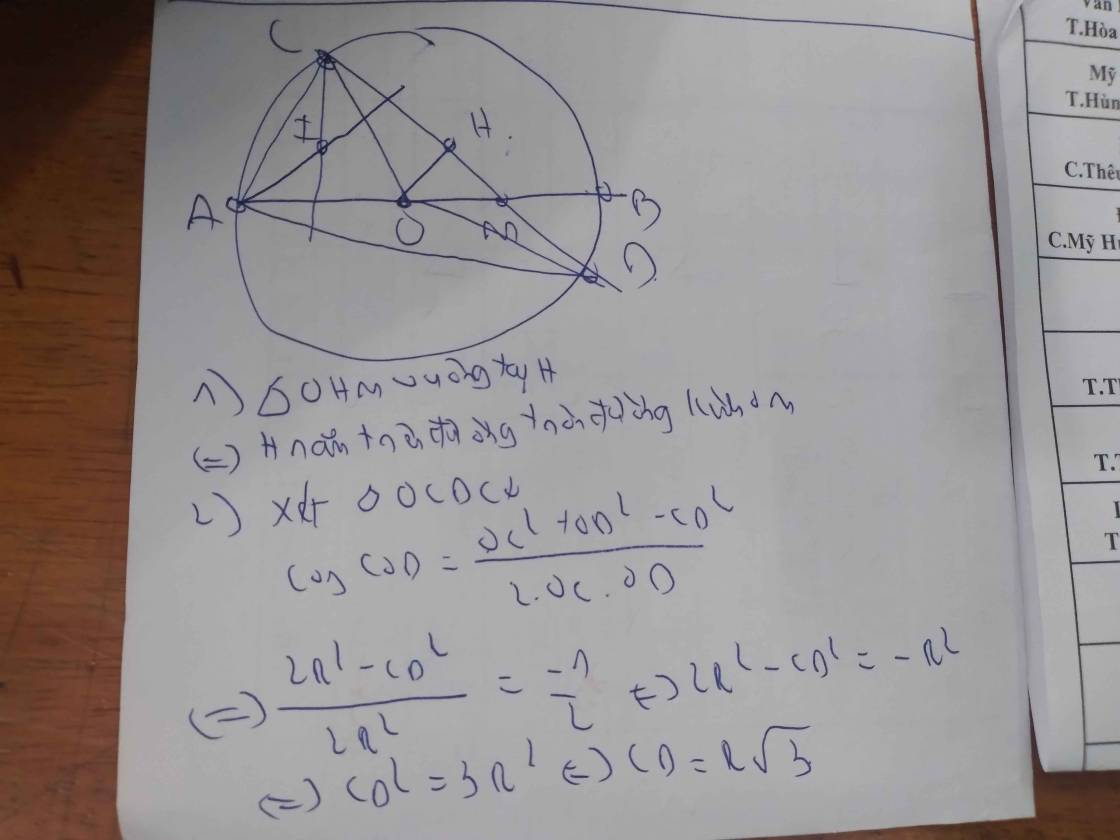 C
I
H
A
O
M
B
D
1) Δ OHM vuông tại H
(=) H nằm trên đường tròn đường kính OM
2) Xét Δ OCD có
cos COD = (OC² + OD² - CD²) / (2.OC.OD)
(=) (2R² - CD²) / (2R²) = -1/2 (=) 2R² - CD² = -R²
(=) CD² = 3R² (=) CD = R√3
Văn
T.Hòa
Mỹ
T.Hùn
C.Thêu
C.Mỹ Hu
T.T
T.
T